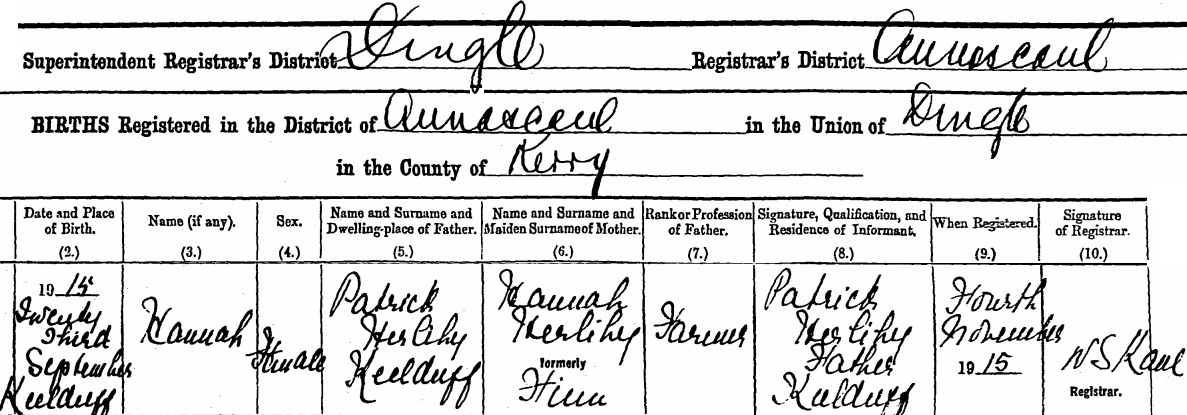 Superintendent Registrar's District Dingle Registrar's District Annascaul
BIRTHS Registered in the District of Annascaul in the Union of Dingle
in the County of Kerry
Date and Place of Birth. Name (if any). Sex. Name and Surname and Dwelling-place of Father. Name and Surname and Maiden Surname of Mother. Rank or Profession of Father. Signature, Qualification, and Residence of Informant. When Registered. Signature of Registrar.
(2.) (3.) (4.) (5.) (6.) (7.) (8.) (9.) (10.)
1915 Patrick Hannah Patrick Fourth
Twenty Third Hannah Female Herlihy Herlihy Farmer Herlihy November
September Kilduff formerly Father 1915 W S Kane
Kilduff Finn Kilduff Registrar.